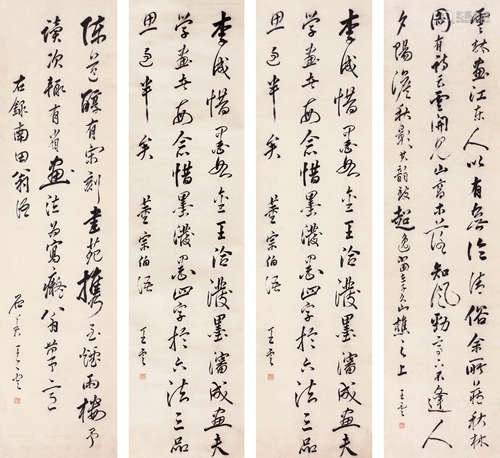 雲林画江东人以有無论清俗余所藏秋林
圖有詩云雲開見山高木落知風勁亭下不逢人
夕陽澹秋影其韵致超逸當在子久山樵之上 王雲
李成惜墨如金王洽潑墨瀋成画夫
学画者每念惜墨潑墨四字於六法三品
思過半矣 董宗伯語 王雲
李成惜墨如金王洽潑墨瀋成画夫
学画者每念惜墨潑墨四字於六法三品
思過半矣 董宗伯語 王雲
陳道醇有宋刻書苑携至煙雨樓予
讀次輒有省画法為寫癡翁筆意
右録南田翁語 王雲